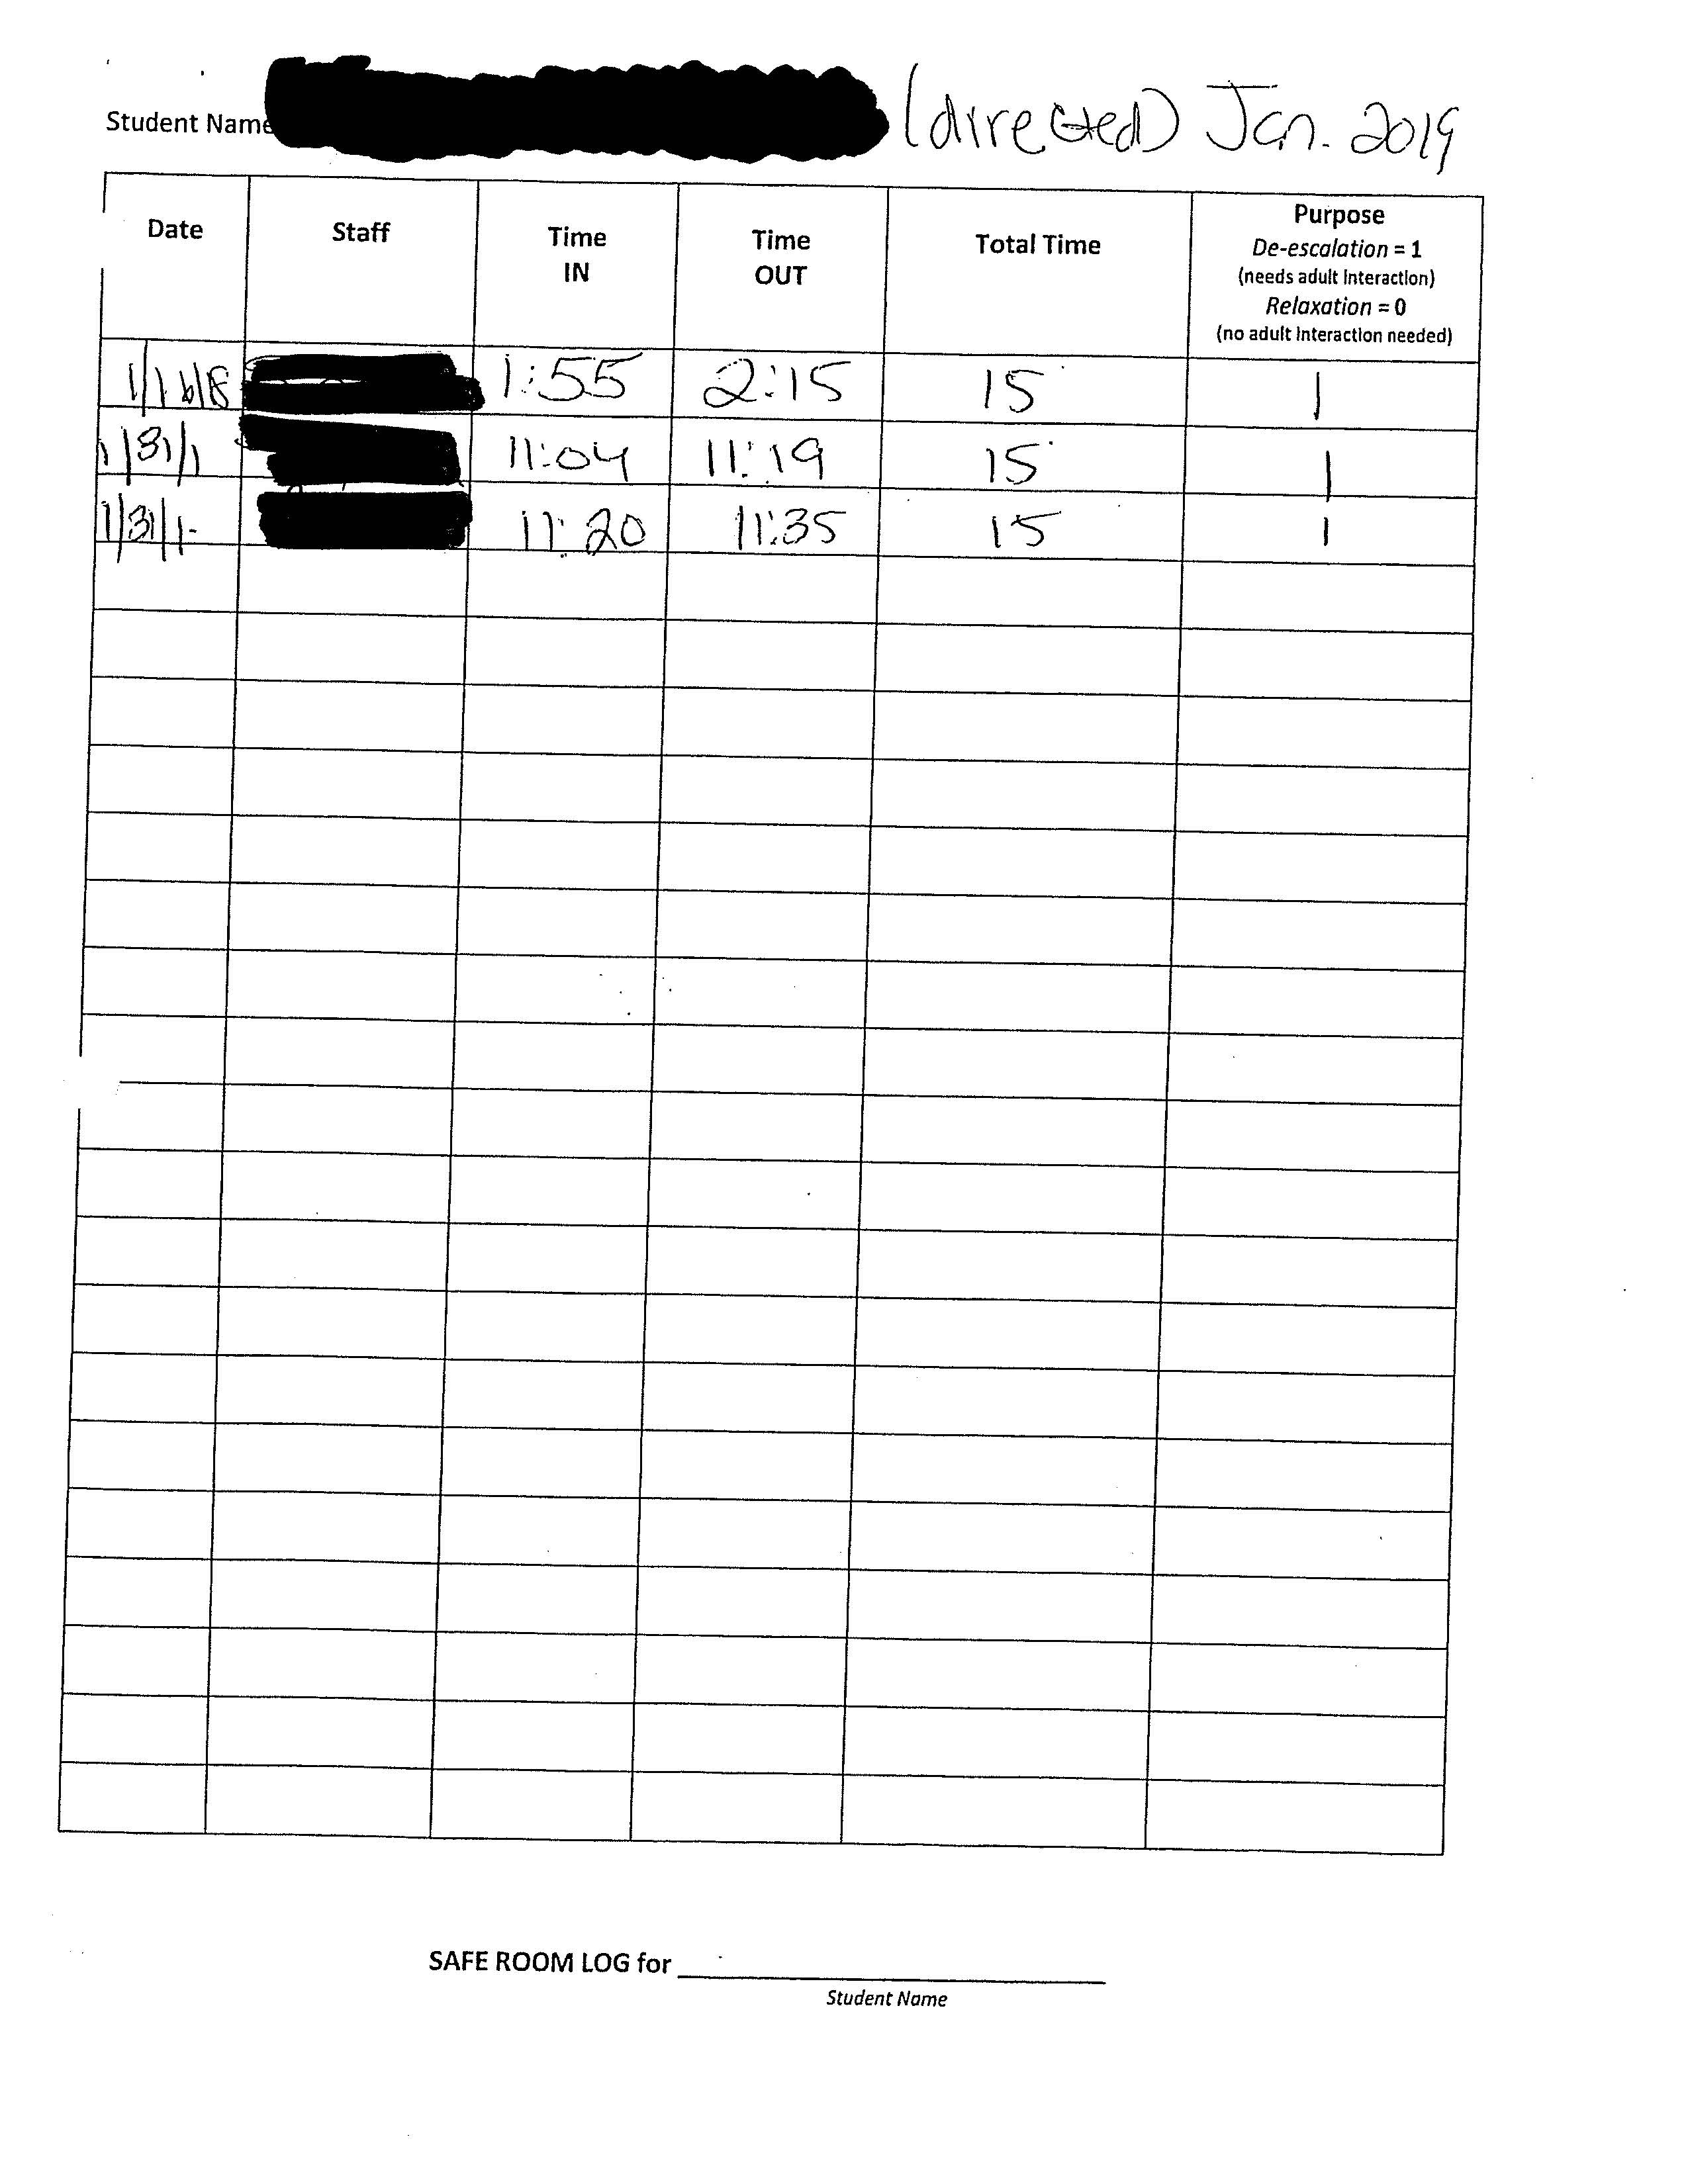 Student Name (directed) Jan. 2019
Date Staff Time IN Time OUT Total Time Purpose
De-escalation = 1
(needs adult interaction)
Relaxation = 0
(no adult interaction needed)
1/16/18 1:55 2:15 15 1
1/31/1 11:04 11:19 15 1
1/31/1- 11:20 11:35 15 1
SAFE ROOM LOG for
Student Name